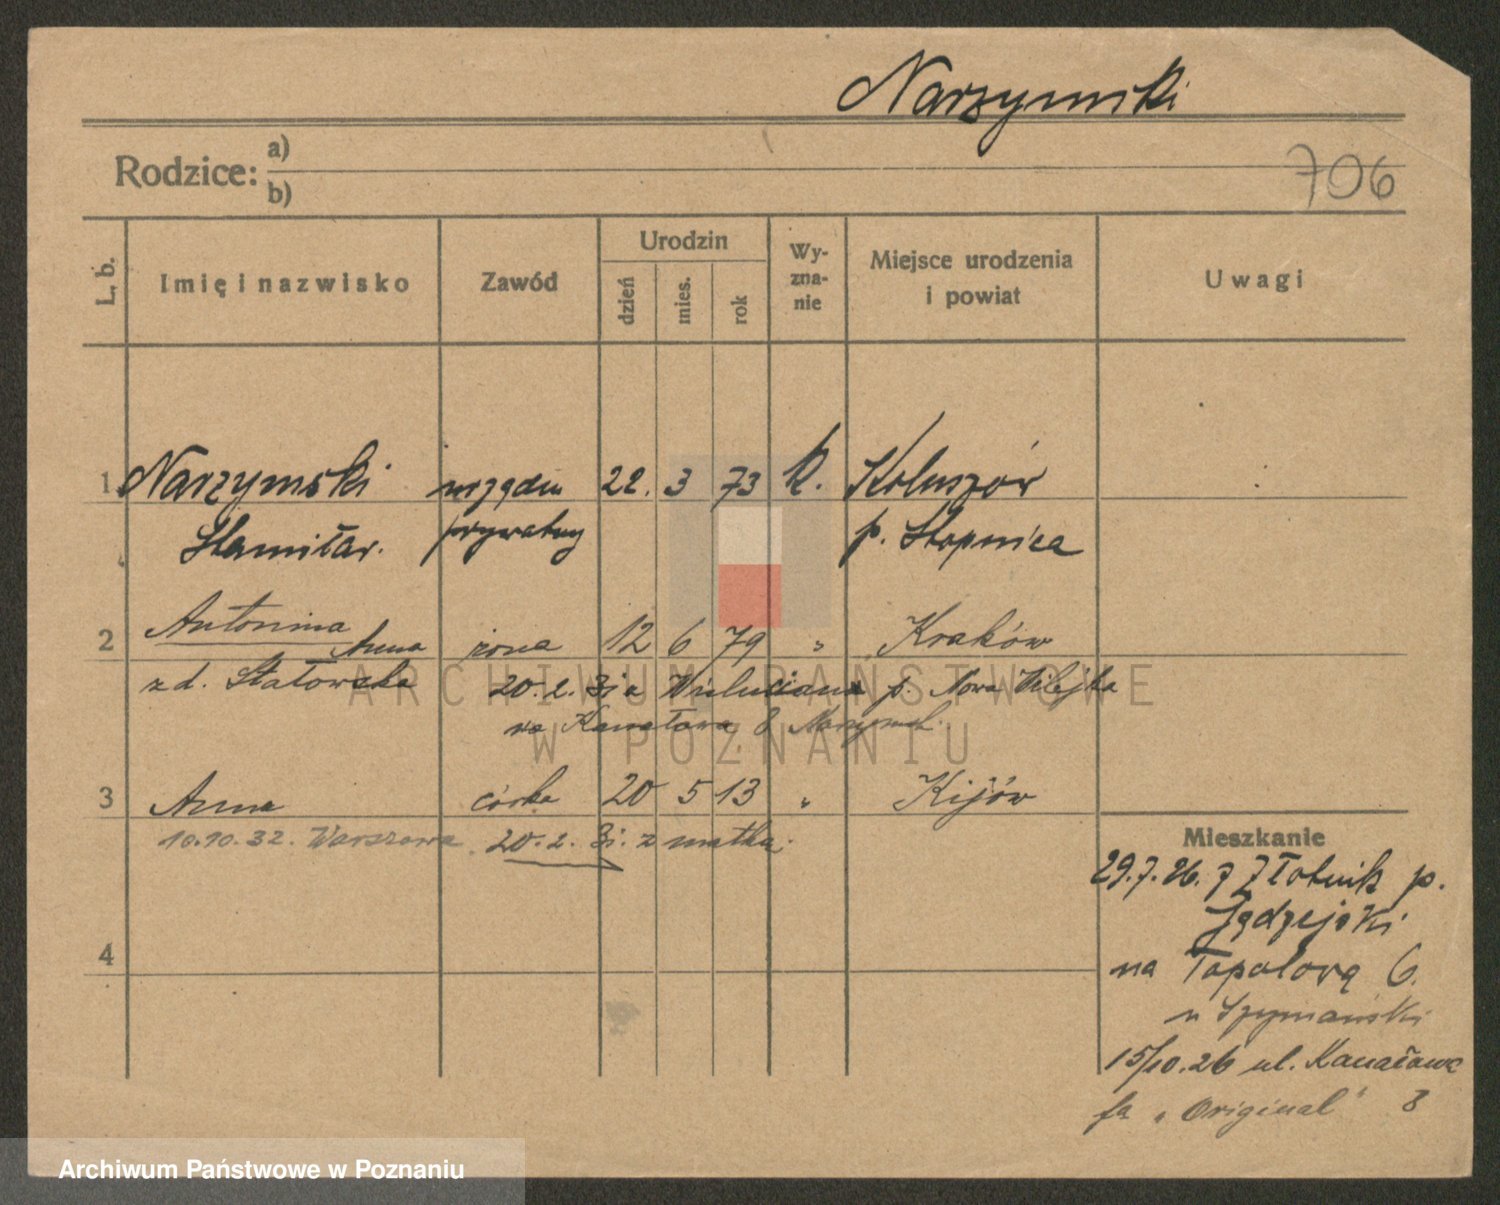 Narzymski
706
Rodzice: a)
b)
L. b. Imię i nazwisko Zawód Urodzin dzień mies. rok Wy-zna-nie Miejsce urodzenia i powiat Uwagi
1 Narzymski urzędn 22. 3 73 k. Koluszów
Stanisław. prywatny p. Stopnica
2 Antonina Anna żona 12 6 79 " Kraków
z d. Statowska 20.2.31 a p. Nowa Wilejka
na Kanałową 8 Narzymsk.
3 Anna córka 20 5 13 " Kijów
10.10.32. Warszawa. 20.2.31. z matką.
Mieszkanie
29.7.26. z Złotnik p.
Jędzejoki
na Topolową 6.
u Szymański
15/10.26 ul. Kanałowa
fa "Original" 8
4
ARCHIWUM PAŃSTWOWE
W POZNANIU
Archiwum Państwowe w Poznaniu